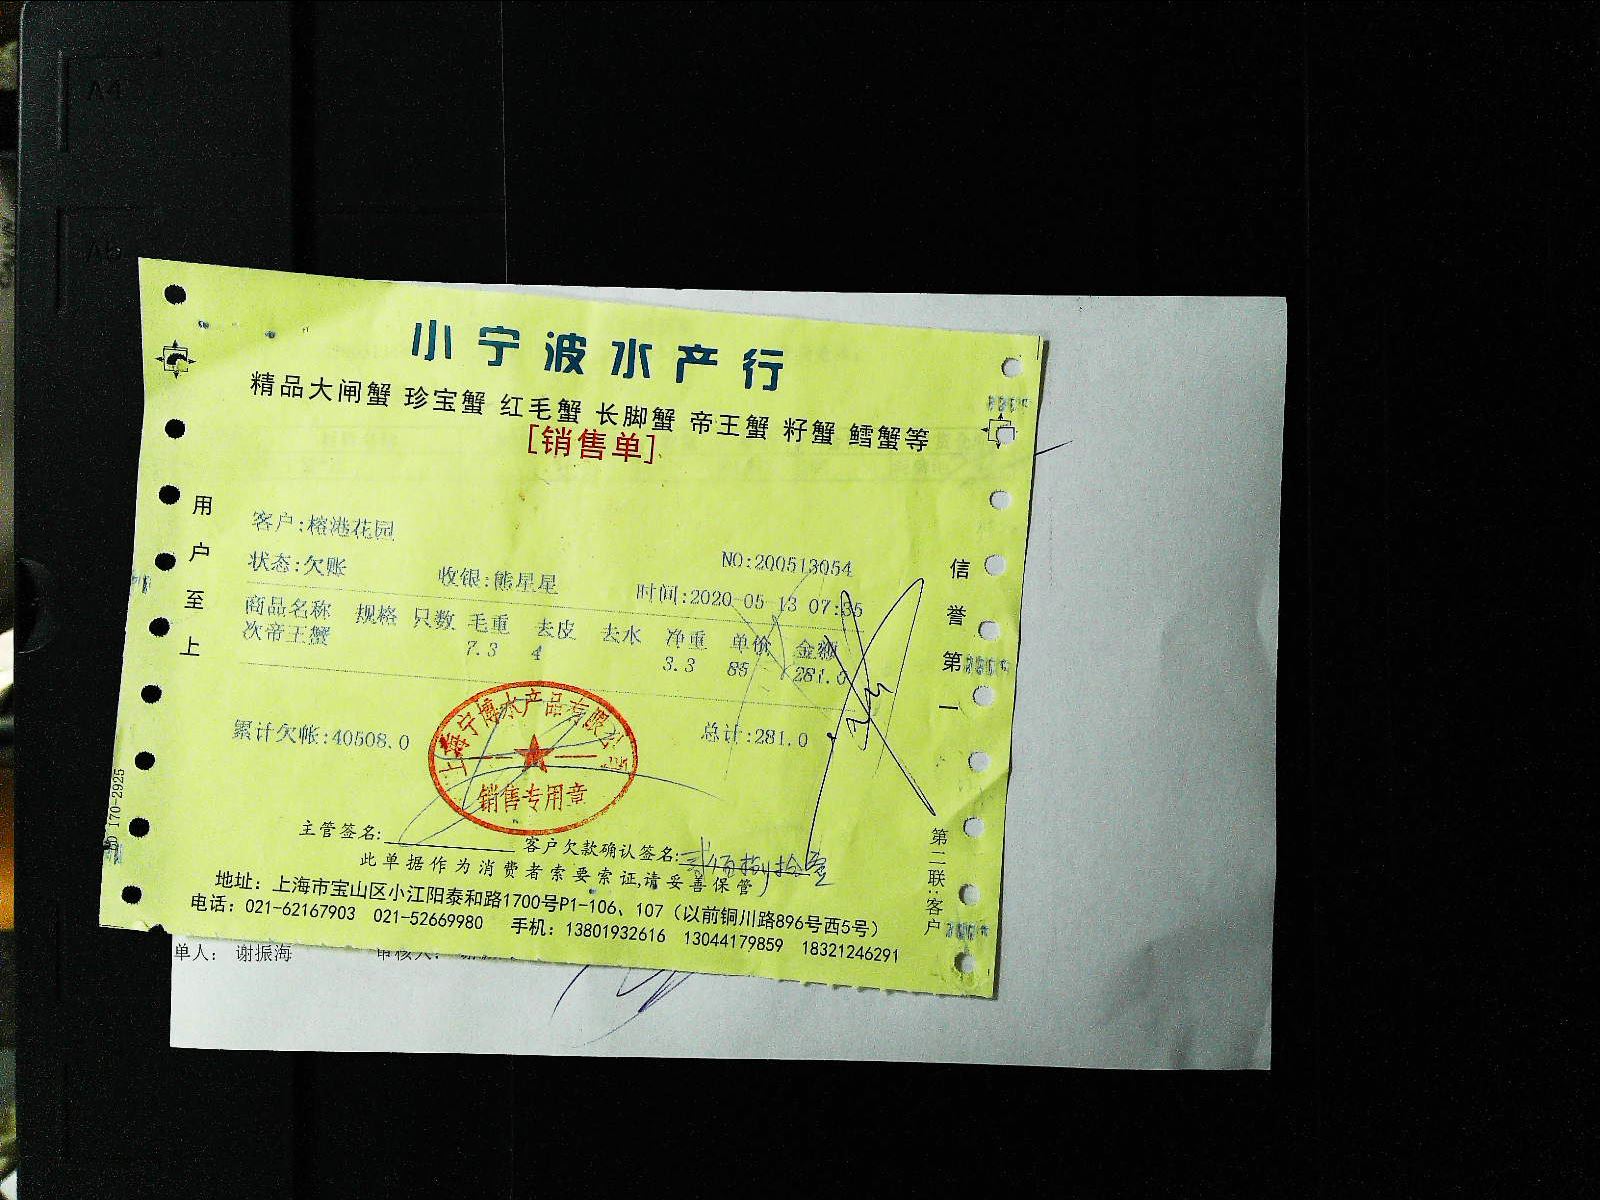 A4
A5
小宁波水产行
精品大闸蟹 珍宝蟹 红毛蟹 长脚蟹 帝王蟹 籽蟹 鳕蟹等
[销售单]
用户至上
客户:榕港花园
NO:200513054
状态:欠账 收银:熊星星 时间:2020-05-13 07:35
商品名称 规格 只数 毛重 去皮 去水 净重 单价 金额
次帝王蟹 7.3 4 3.3 85 281.0
累计欠帐:40508.0 总计:281.0
上海宁博水产品有限公司
销售专用章
信誉第一
主管签名: 客户欠款确认签名:
此单据作为消费者索要索证,请妥善保管
地址：上海市宝山区小江阳泰和路1700号P1-106、107（以前铜川路896号西5号）
电话：021-62167903 021-52669980 手机：13801932616 13044179859 18321246291
第二联:客户
170-2925
单人： 谢振海 审核人：